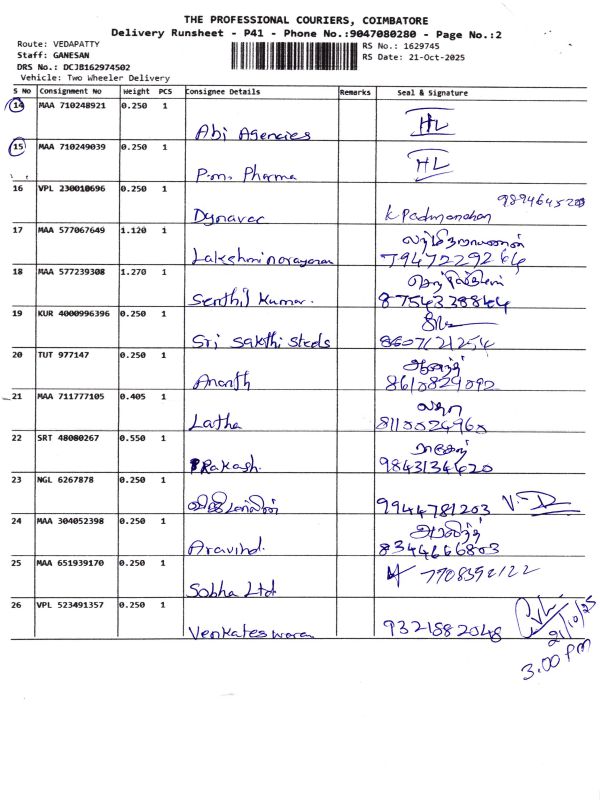 THE PROFESSIONAL COURIERS, COIMBATORE
Delivery Runsheet - P41 - Phone No.:9047080280 - Page No.:2
Route: VEDAPATTY
RS No.: 1629745
Staff: GANESAN
RS Date: 21-Oct-2025
DRS No.: DCJB162974502
Vehicle: Two Wheeler Delivery
S No Consignment No Weight PCS Consignee Details Remarks Seal & Signature
14 MAA 710248921 0.250 1
Abi Agencies HL
15 MAA 710249039 0.250 1
P.m. Pharma HL
16 VPL 230010696 0.250 1
Dynavac K Padmanaban
17 MAA 577067649 1.120 1 லட்சுமிநாராயணன்
Lakshminarayanan 7947229264
18 MAA 577239308 1.270 1
Senthil Kumar.
19 KUR 4000996396 0.250 1
Sri Sakthi Steels
20 TUT 977147 0.250 1 ஆனந்த்
Ananth 8610829092
21 MAA 711777105 0.405 1 லதா
Latha 8110024960
22 SRT 48080267 0.550 1
PRakash. 9843134620
23 NGL 6267878 0.250 1
9944781203
24 MAA 304052398 0.250 1 அரவிந்த்
Aravind. 8344666803
25 MAA 651939170 0.250 1 7708392122
Sobha Ltd
26 VPL 523491357 0.250 1
Venkateswara 9321882048 21/10/25
3.00 PM